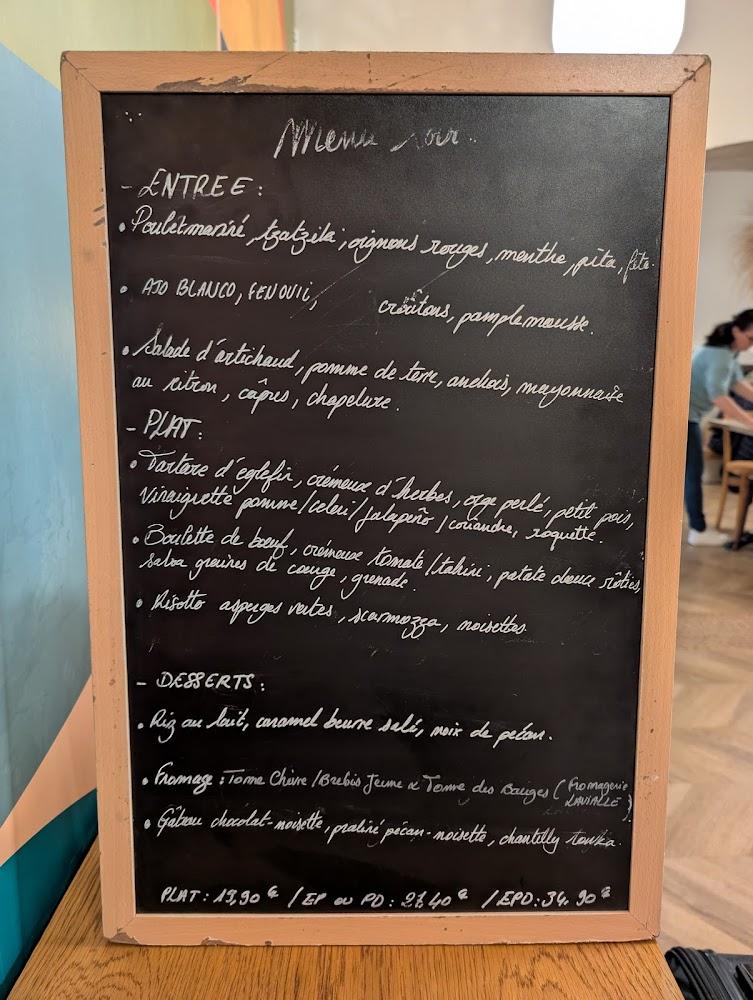 Menu soir
- ENTREE :
• Poulet mariné, tzatziki, oignons rouges, menthe, pita, féta.
• AJO BLANCO, FENOUIL, croûtons, pamplemousse.
• Salade d'artichaud, pomme de terre, anchois, mayonnaise
au citron, câpres, chapelure.
- PLAT :
• Tartare d'eglefin, crémeux d'herbes, orge perlé, petit pois,
Vinaigrette pomme/celeri/jalapeño/coriandre, roquette.
• Boulette de bœuf, crémeux tomate/tahini, patate douce rôties,
salsa graines de courge, grenade.
• Risotto asperges vertes, scarmozza, noisettes
- DESSERTS :
• Riz au lait, caramel beurre salé, noix de pécan.
• Fromage : Tome Chèvre/Brebis Jeune & Tomme des Bauges (Fromagerie
LAVIALLE)
• Gâteau chocolat-noisette, praliné pécan-noisette, chantilly tonka.
PLAT : 19,90 € / EP ou PD : 27,40 € / EPD : 34.90 €